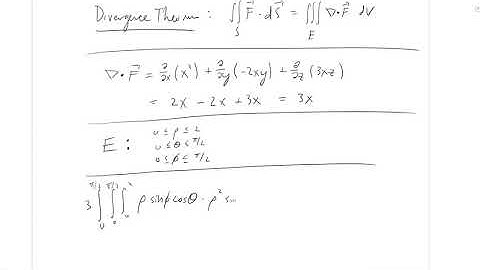 Divergence Theorem : ∬_S F⃗ · dS⃗ = ∭_E ∇·F⃗ dV
∇·F⃗ = ∂/∂x (x²) + ∂/∂y (-2xy) + ∂/∂z (3xz)
= 2x - 2x + 3x = 3x
E : 0 ≤ ρ ≤ 2
0 ≤ θ ≤ π/2
0 ≤ φ ≤ π/2
3 ∫_0^{π/2} ∫_0^{π/2} ∫_0 ρ sinφ cosθ · ρ² s